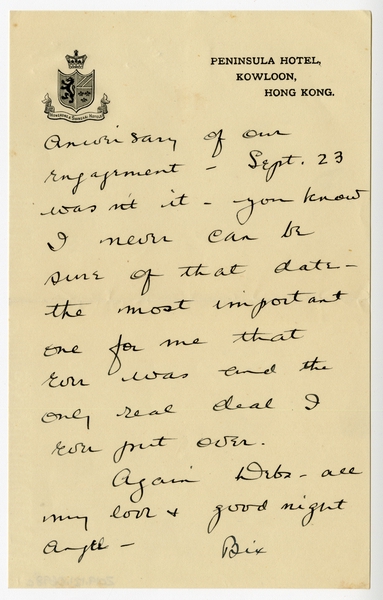 PENINSULA HOTEL,
KOWLOON,
HONG KONG.
HONGKONG & SHANGHAI HOTELS
Anniversary of our
engagement – Sept. 23
wasn't it – you know
I never can be
sure of that date –
the most important
one for me that
ever was and the
only real deal I
ever put over.
Again Debs – all
my love & good night
Angel – Bix